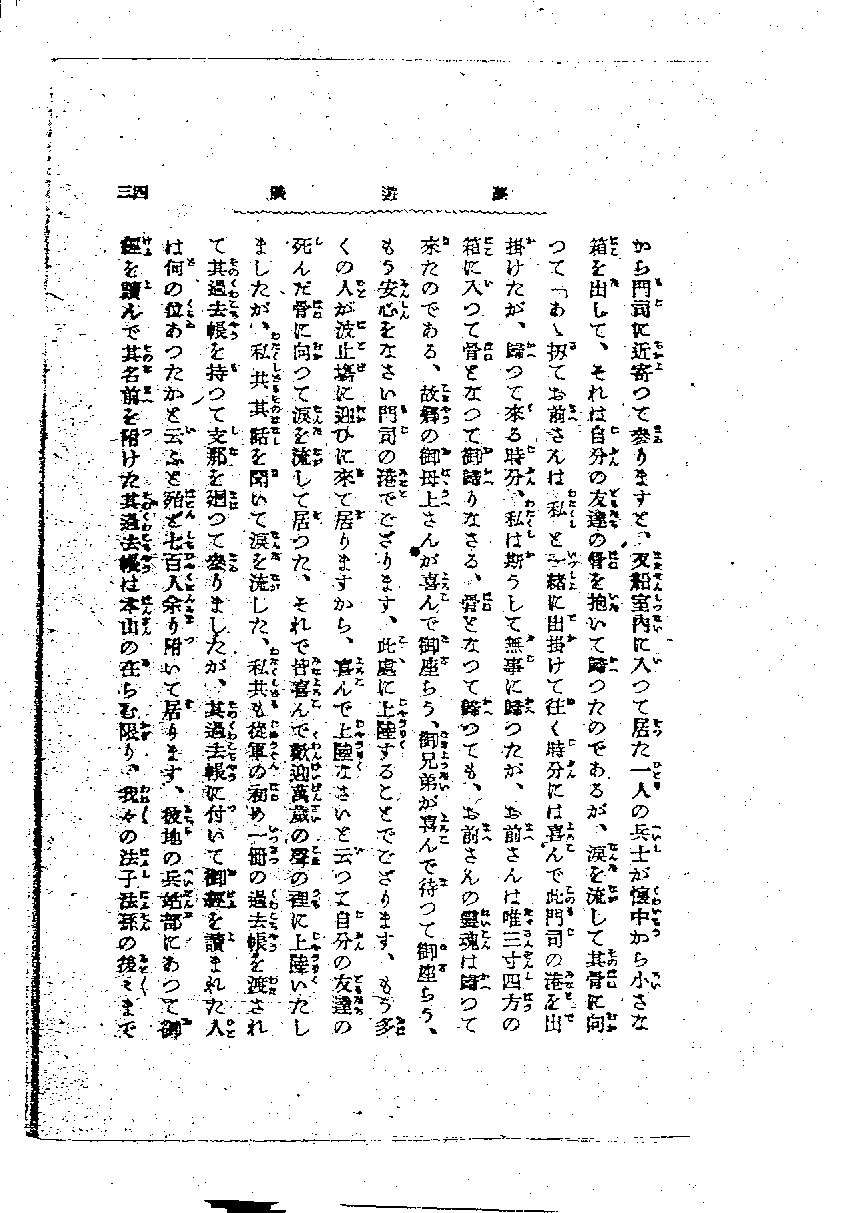 四三
から門司に近寄つて參りますと、又船室內に入つて居た一人の兵士が懷中から小さな
箱を出して、それは自分の友達の骨を抱いて歸つたのであるが、淚を流して其骨に向
つて「あゝ扨てお前さんは私と一緒に出掛けて往く時分には喜んで此門司の港を出
掛けたが、歸つて來る時分、私は斯うして無事に歸つたが、お前さんは唯三寸四方の
箱に入つて骨となつて御歸りなさる、骨となつて歸つても、お前さんの靈魂は歸つて
來たのである、故鄕の御母上さんが喜んで御座らう、御兄弟が喜んで待つて御座らう、
もう安心をなさい門司の港でござります、此處に上陸することでござります、もう多
くの人が波止塲に迎ひに來て居りますから、喜んで上陸なさいと云つて自分の友達の
死んだ骨に向つて淚を流して居つた、それで皆喜んで歡迎萬歲の聲の裡に上陸いたし
ましたが、私共其話を聞いて淚を流した、私共も從軍の初め一冊の過去帳を渡され
て其過去帳を持つて支那を廻つて參りましたが、其過去帳に付いて御經を讀まれた人
は何の位あつたかと云ふと殆ど七百人余り附いて居ります、彼地の兵站部にあつて御
經を讀んで其名前を附けた其過去帳は本山の在らむ限り、我々の法子法孫の後々まで